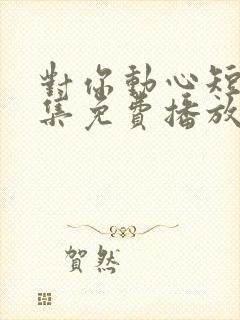 對你動心短
集免費播放
賀然